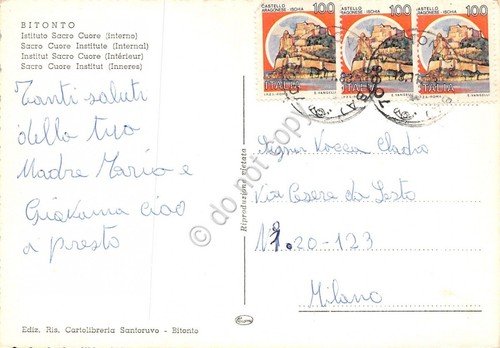 BITONTO
Istituto Sacro Cuore (interno)
Sacro Cuore Institute (Internal)
Institut Sacro Cuore (Intérieur)
Sacro Cuore Institut (Inneres)
Tanti saluti
della tua
Madre Maria e
Giacoma ciao
a presto
Ediz. Ris. Cartolibreria Santoruvo - Bitonto
Riproduzione vietata
CASTELLO ARAGONESE - ISCHIA 100
ITALIA
CASTELLO ARAGONESE - ISCHIA 100
ITALIA
CASTELLO ARAGONESE - ISCHIA 100
ITALIA
Vocca Claudia
Via Cesare da Sesto
N. 20-123
Milano
do not copy